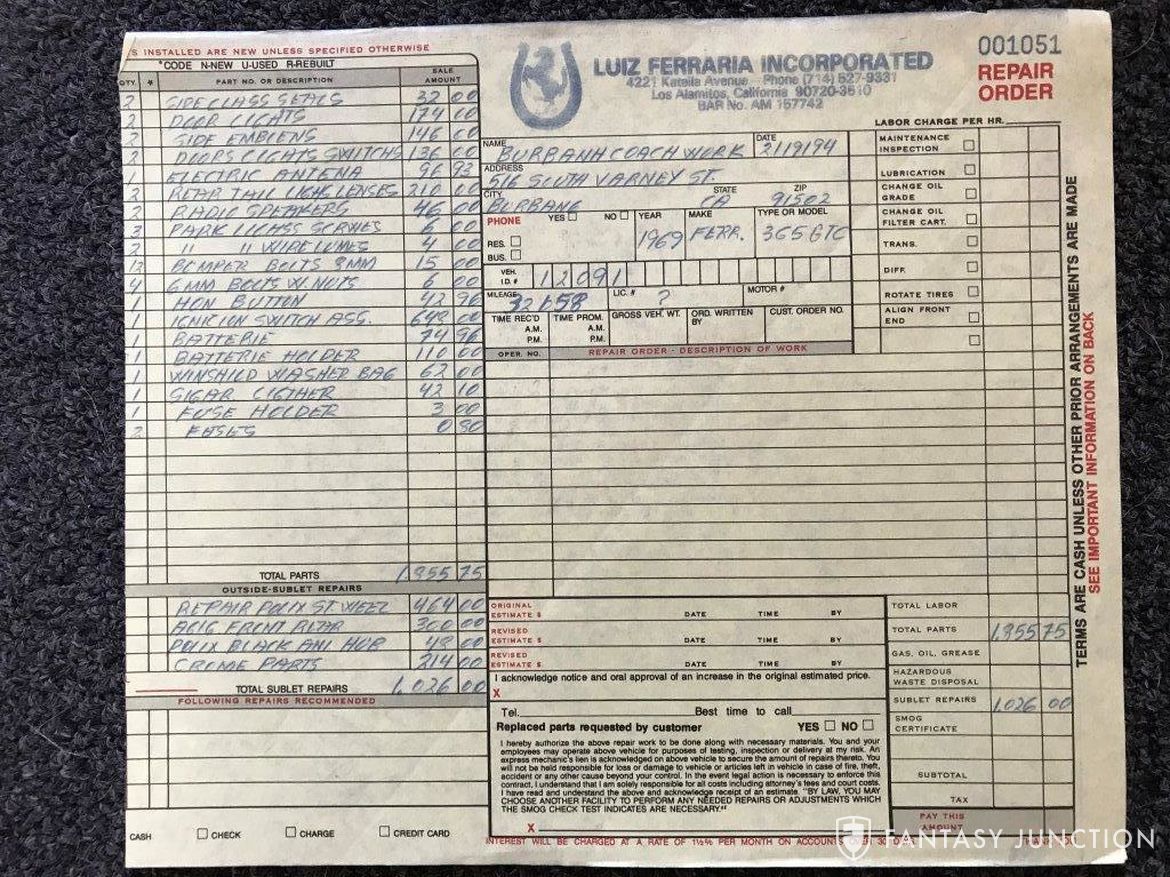 S INSTALLED ARE NEW UNLESS SPECIFIED OTHERWISE
*CODE N-NEW U-USED R-REBUILT
QTY. * PART NO. OR DESCRIPTION SALE AMOUNT
2 SIDE GLASS SEALS 32 00
2 DOOR LIGHTS 174 00
2 SIDE EMBLENS 146 00
2 DOORS LIGHTS SWITCHS 136 00
1 ELECTRIC ANTENA 96 93
2 REAR TAIL LIGH LENSES 210 00
2 RADIO SPEAKERS 46 00
3 PARK 6 00
2 " " 4 00
13 BOMPER BOLTS 8MM 15 00
4 6MM BOLTS W. NUTS 6 00
1 HON BUTTON 42 96
1 IGNICION SWITCH ASS. 648 00
1 BATTERIE 74 96
1 BATTERIE HOLDER 110 00
1 WINSHILD WASHER BAG 62 00
1 SIGAR LIGTHER 42 10
1 FUSE HOLDER 3 00
2 FUSES 0 80
TOTAL PARTS 1,855 75
OUTSIDE-SUBLET REPAIRS
REPAIR POLIX ST. WEEL 464 00
300 00
POLIX BLACK ANI HUB 48 00
CROME PARTS 214 00
TOTAL SUBLET REPAIRS 1,026 00
FOLLOWING REPAIRS RECOMMENDED
CASH CHECK CHARGE CREDIT CARD
LUIZ FERRARIA INCORPORATED
4221 Katella Avenue Phone (714) 527-9331
Los Alamitos, California 90720-3510
BAR No. AM 157742
001051
REPAIR ORDER
LABOR CHARGE PER HR.
NAME BURBANH COACH WORK DATE 2/19/94
ADDRESS 516 SOUTH VARNEY ST.
CITY BURBANG STATE CA ZIP 91502
PHONE YES NO YEAR 1969 MAKE FERR. TYPE OR MODEL 365 GTC
RES.
BUS.
VEH. I.D. # 12091
MILEAGE 32658 LIC. # ? MOTOR #
TIME REC'D A.M. P.M. TIME PROM. A.M. P.M. GROSS VEH. WT. ORD. WRITTEN BY CUST. ORDER NO.
OPER. NO. REPAIR ORDER - DESCRIPTION OF WORK
MAINTENANCE INSPECTION
LUBRICATION
CHANGE OIL GRADE
CHANGE OIL FILTER CART.
TRANS.
DIFF.
ROTATE TIRES
ALIGN FRONT END
ORIGINAL ESTIMATE $ DATE TIME BY
REVISED ESTIMATE $ DATE TIME BY
REVISED ESTIMATE $ DATE TIME BY
I acknowledge notice and oral approval of an increase in the original estimated price.
X
Tel. Best time to call
Replaced parts requested by customer YES NO
I hereby authorize the above repair work to be done along with necessary materials. You and your
employees may operate above vehicle for purposes of testing, inspection or delivery at my risk. An
express mechanic's lien is acknowledged on above vehicle to secure the amount of repairs thereto. You
will not be held responsible for loss or damage to vehicle or articles left in vehicle in case of fire, theft,
accident or any other cause beyond your control. In the event legal action is necessary to enforce this
contract, I understand that I am solely responsible for all costs including attorney's fees and court costs.
I have read and understand the above and acknowledge receipt of an estimate. "BY LAW, YOU MAY
CHOOSE ANOTHER FACILITY TO PERFORM ANY NEEDED REPAIRS OR ADJUSTMENTS WHICH
THE SMOG CHECK TEST INDICATES ARE NECESSARY."
X
INTEREST WILL BE CHARGED AT A RATE OF 1½% PER MONTH ON ACCOUNTS OVER 30
TOTAL LABOR
TOTAL PARTS 1,855 75
GAS, OIL, GREASE
HAZARDOUS WASTE DISPOSAL
SUBLET REPAIRS 1,026 00
SMOG CERTIFICATE
SUBTOTAL
TAX
PAY THIS AMOUNT
TERMS ARE CASH UNLESS OTHER PRIOR ARRANGEMENTS ARE MADE
SEE IMPORTANT INFORMATION ON BACK
FANTASY JUNCTION